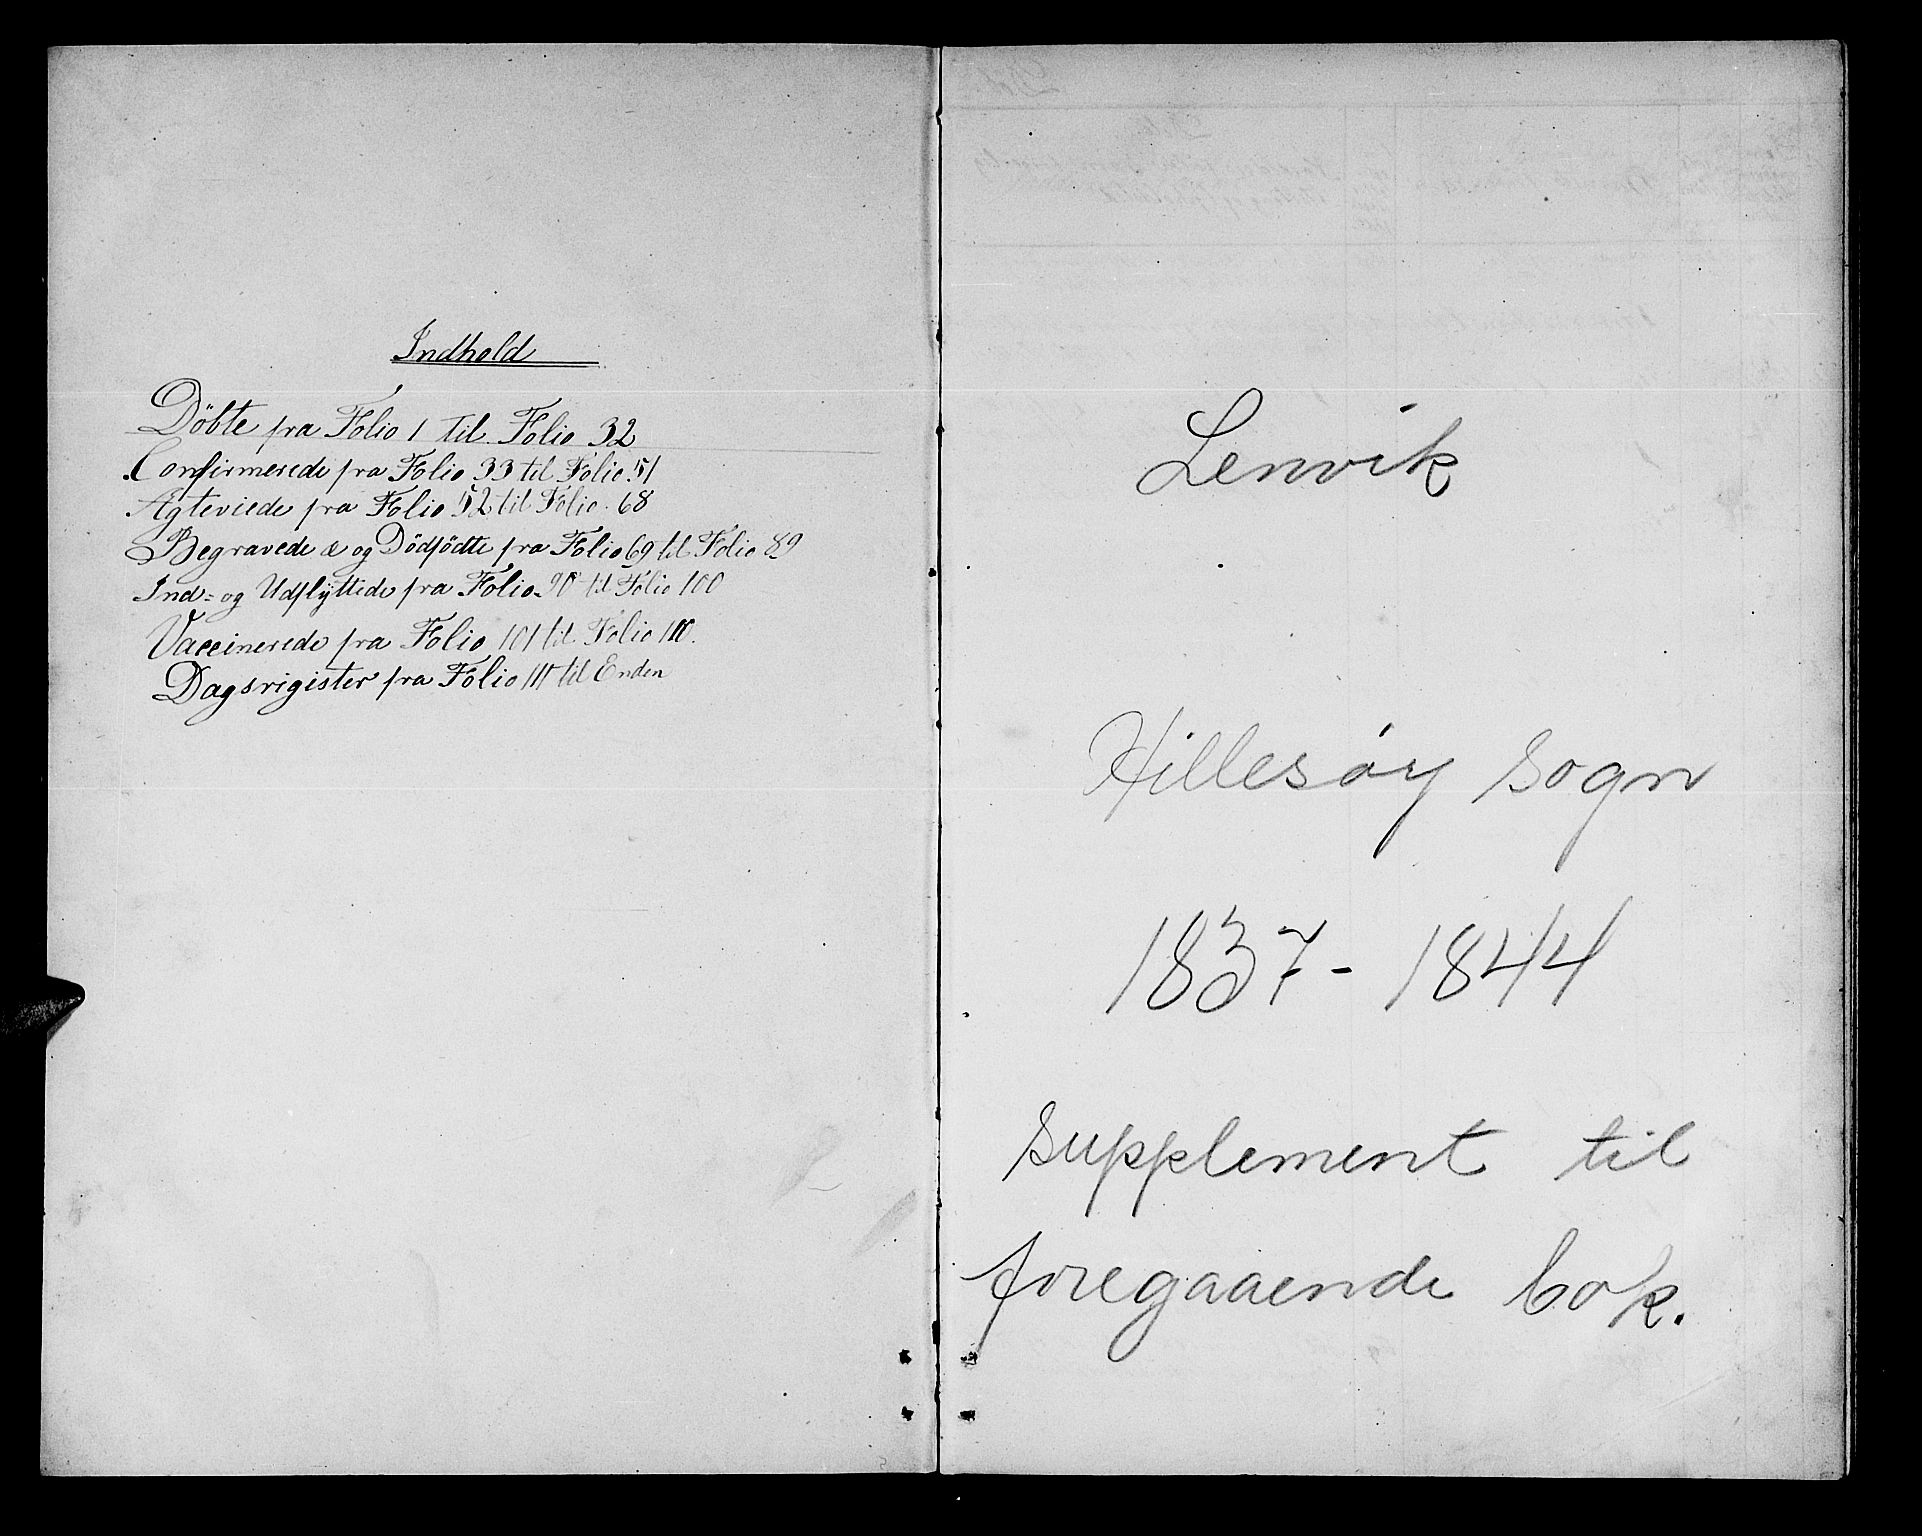 Indhold
Döbte fra Folio 1 til Folio 32
Confirmerede fra Folio 33 til Folio 51
Agteviede fra Folio 52 til Folio 68
Begravede & og Dödfödte fra Folio 69 til Folio 89
Ind= og Udflyttede fra Folio 90 til Folio 100
Vaccinerede fra Folio 101 til Folio 110.
Dagsrigister fra Folio 111 til Enden
Lenvik
Hillesøy sogn
1837 - 1844
supplement til
foregaaende bok.